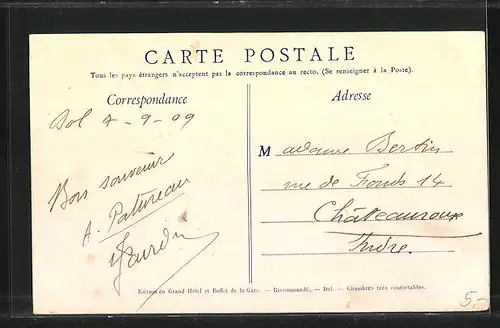 CARTE POSTALE
Tous les pays étrangers n'acceptent pas la correspondance au recto. (Se renseigner à la Poste).
Correspondance
Adresse
Dol 7-9-09
Bon souvenir
A. Patureau
Madame Bertin
rue de Fonds 14
Châteauroux
Indre.
Edition du Grand Hôtel et Buffet de la Gare. — Recommandé. — Dol. — Chambres très confortables.
5.-